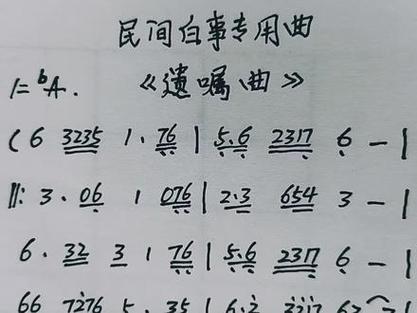 民间白事专用曲
1=ᵇA. 《遗嘱曲》
(6 3235 1· 76 | 5·6 2317 6 - |
‖: 3· 06 1 076 | 2·3 654 3 - |
6· 32 3 1 76 | 5·6 2317 6 - |
66 7276 5· 35 | 6·2